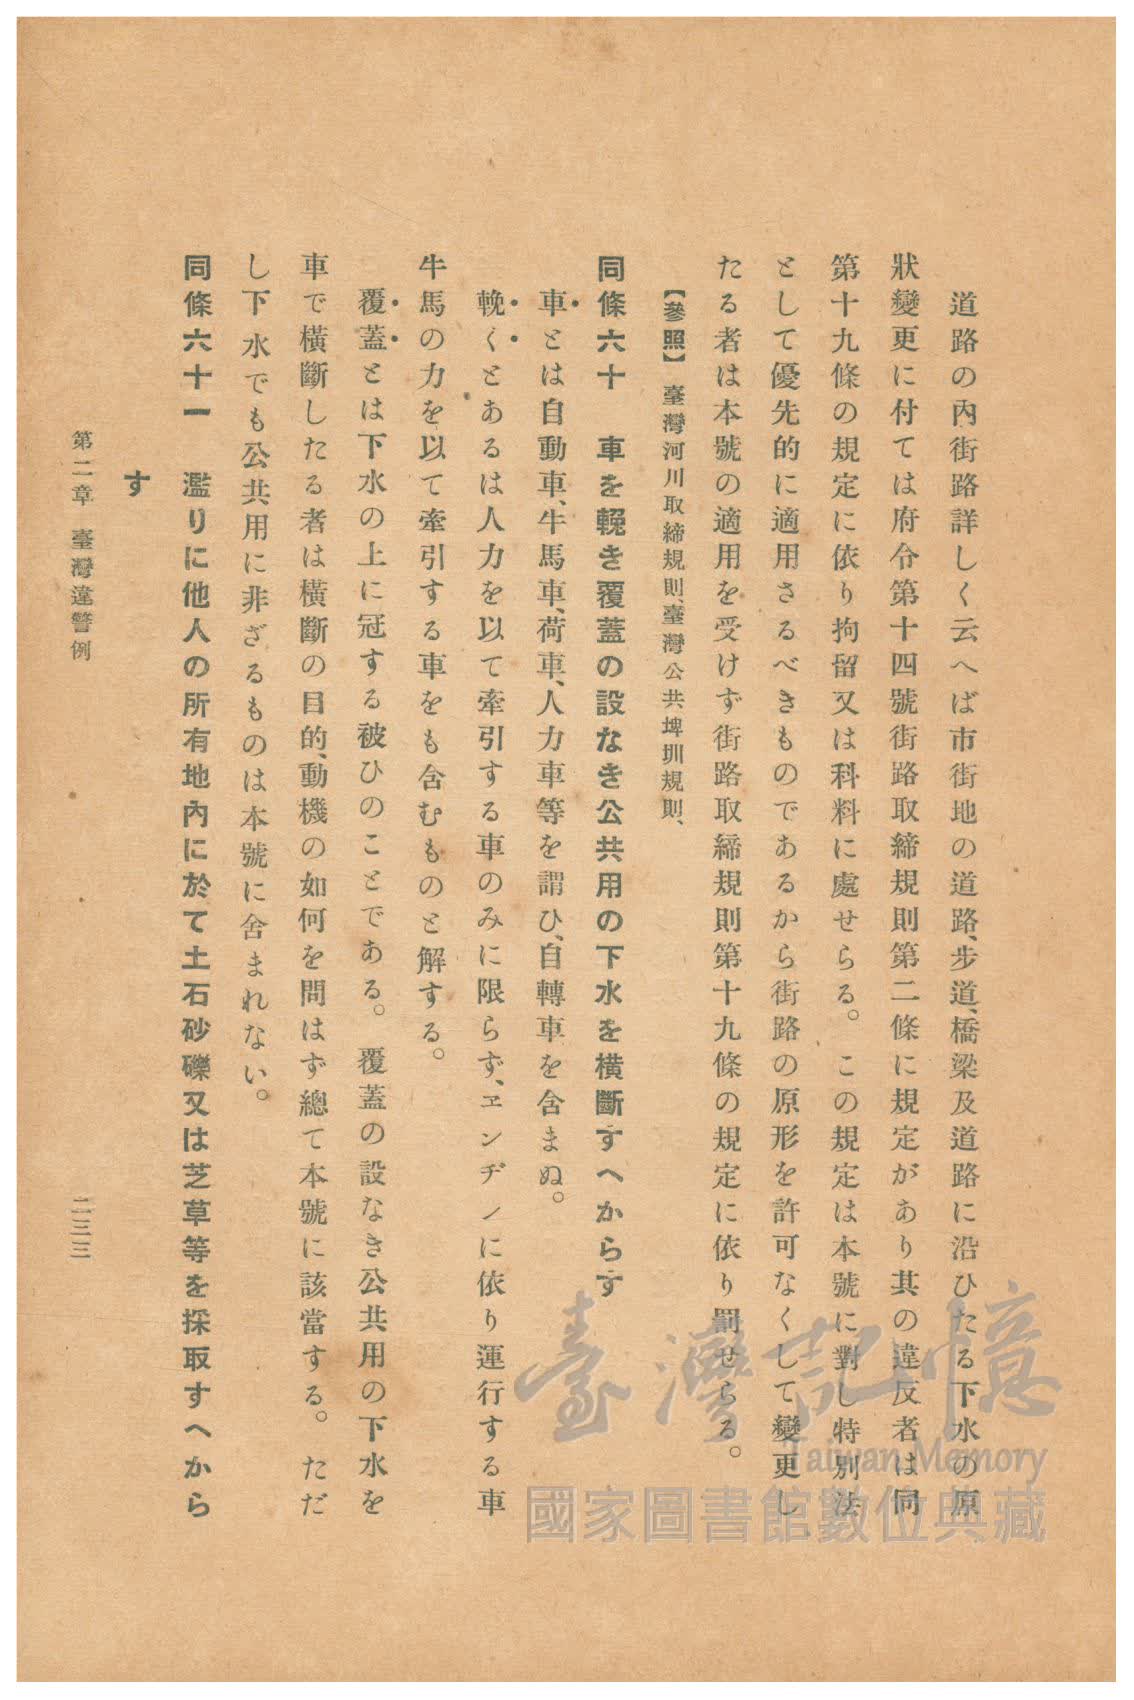 道路の內街路詳しく云へば市街地の道路、步道、橋梁及道路に沿ひたる下水の原
狀變更に付ては府令第十四號街路取締規則第二條に規定があり其の違反者は同
第十九條の規定に依り拘留又は科料に處せらる。この規定は本號に對し特別法
として優先的に適用さるべきものであるから街路の原形を許可なくして變更し
たる者は本號の適用を受けず街路取締規則第十九條の規定に依り罰せらる。
【參照】臺灣河川取締規則、臺灣公共埤圳規則、
同條六十 車を輓き覆蓋の設なき公共用の下水を橫斷すへからす
車とは自動車、牛馬車、荷車、人力車等を謂ひ、自轉車を含まぬ。
輓くとあるは人力を以て牽引する車のみに限らず、ヱンヂノに依り運行する車
牛馬の力を以て牽引する車をも含むものと解する。
覆蓋とは下水の上に冠する被ひのことである。 覆蓋の設なき公共用の下水を
車で橫斷したる者は橫斷の目的、動機の如何を問はず總て本號に該當する。ただ
し下水でも公共用に非ざるものは本號に含まれない。
同條六十一 濫りに他人の所有地內に於て土石砂礫又は芝草等を採取すへから
す
第二章 臺灣違警例
二三三
臺灣記憶
Taiwan Memory
國家圖書館數位典藏